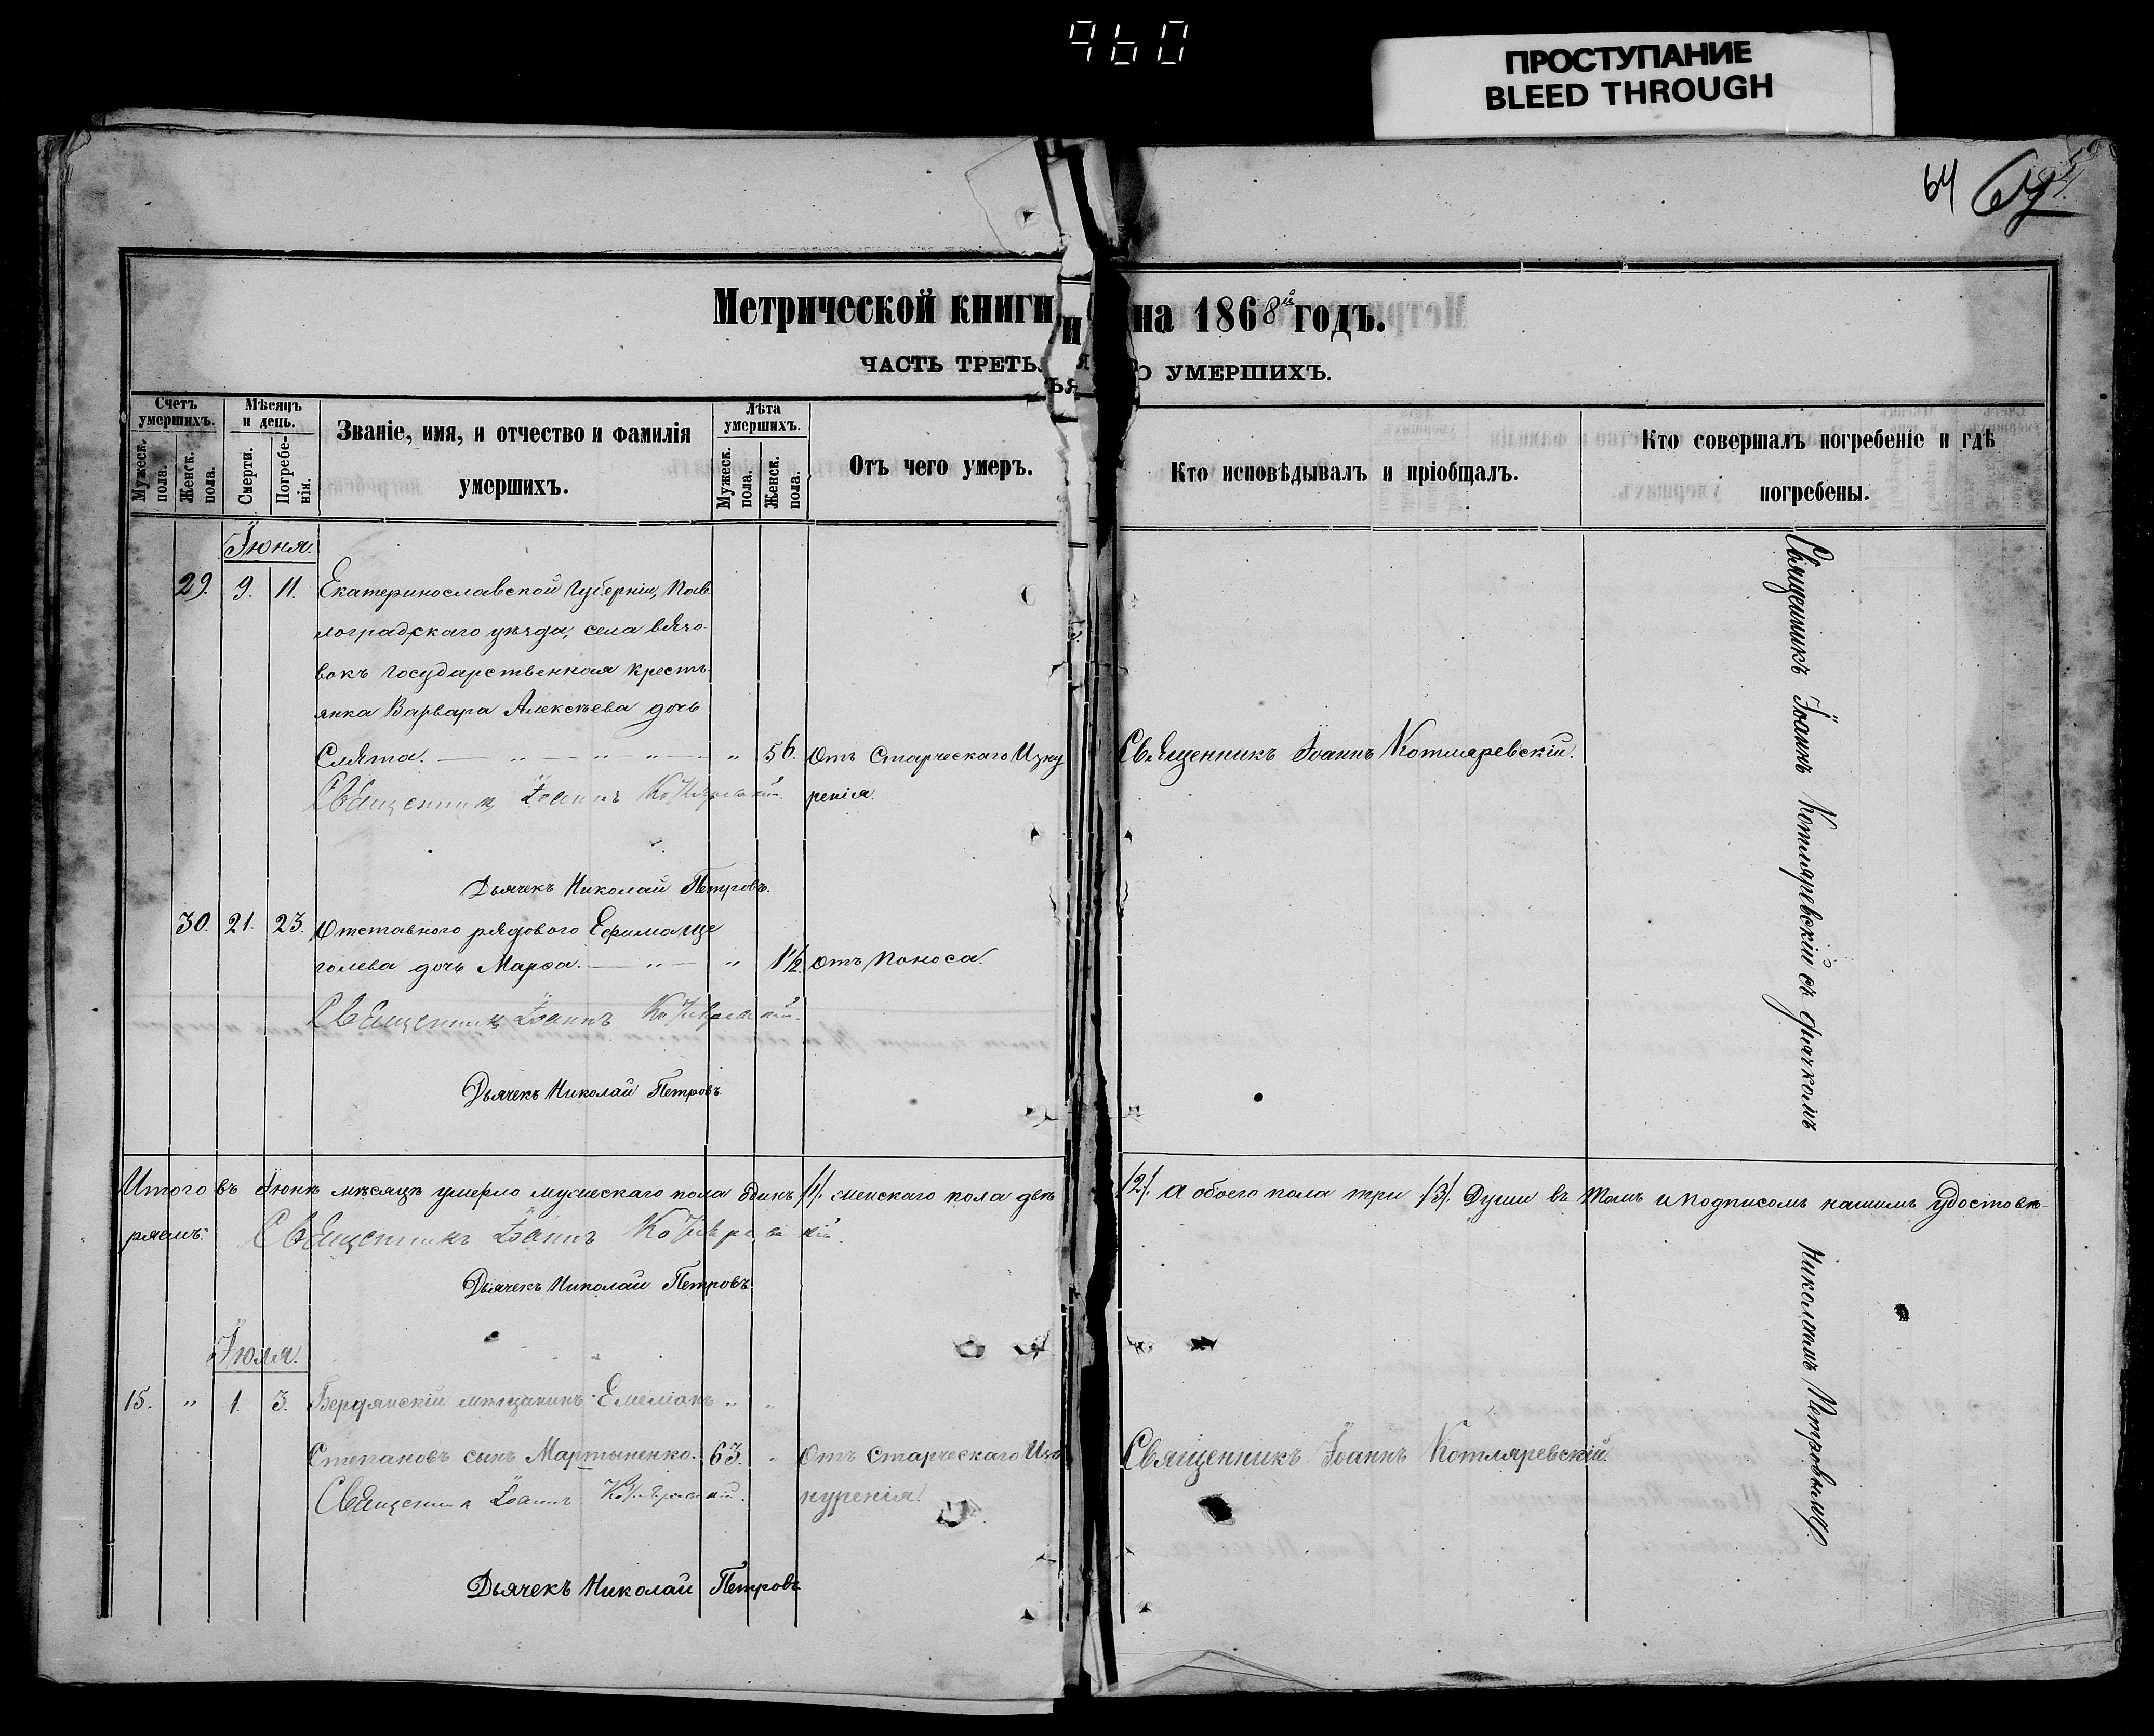 960
ПРОСТУПАНИЕ
BLEED THROUGH
64
Метрической книги на 1868й годъ.
ЧАСТЬ ТРЕТЬЯ О УМЕРШИХЪ.
Счетъ умершихъ.
Мужеск. пола.
Женск. пола.
Мѣсяцъ и день.
Смерти.
Погребенія.
Званіе, имя, и отчество и фамилія умершихъ.
Лѣта умершихъ.
Мужеск. пола.
Женск. пола.
Отъ чего умеръ.
Кто исповѣдывалъ и пріобщалъ.
Кто совершалъ погребеніе и гдѣ погребены.
Іюня.
29. 9. 11. Екатеринославской Губерніи, Пав
лоградскаго уѣзда, села
вокъ Государственная кресть
янка Варвара Алексѣева дочь
Смята. „ 56. Отъ Старческаго Изну Священникъ Іоаннъ Котляревскій.
Священникъ Іоаннъ Котляревскій. ренія.
Дьячекъ Николай Петровъ.
30. 21. 23. Отставного рядового Ефима Ще
голева дочь Марѳа. „ „ 1½ отъ Поноса.
Священникъ Іоаннъ Котляревскій.
Дьячекъ Николай Петровъ
Итого въ Іюнѣ мѣсяцѣ умерло мужескаго пола одинъ /1/. женскаго пола двѣ /2/. а обоего пола три /3/. Души въ томъ и подписомъ нашимъ удостовѣ-
ряемъ:
Священникъ Іоаннъ Котляревскій.
Дьячекъ Николай Петровъ
Іюля.
15. „ 1. 3. Бердянскій мѣщанинъ Емеліанъ „ „
Степановъ сынъ Мартыненко. 63. „ Отъ Старческаго Изно Священникъ Іоаннъ Котляревскій.
Священникъ Іоаннъ Котляревскій. куренія.
Дьячекъ Николай Петровъ
Священникъ Іоаннъ Котляревскій съ дьячкомъ
Николаемъ Петровымъ.